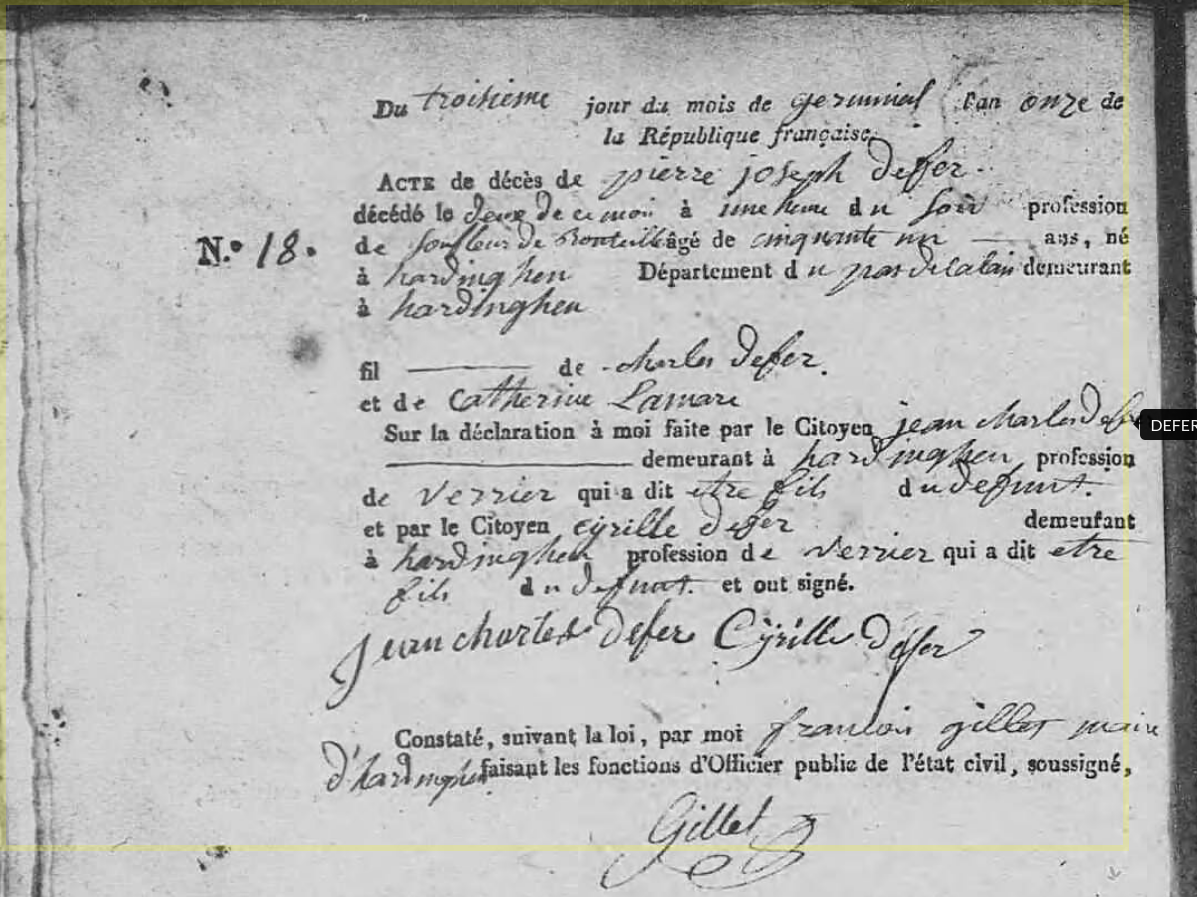 Du troisieme jour du mois de germinal l'an onze de
la République française.
ACTE de décès de pierre joseph deffer
décédé le deux de ce mois à une heure du soir profession
N.º 18. de soufleur de Bouteille âgé de cinquante un ans, né
à hardinghen Département du pas de calais demeurant
à hardinghen
fil de charles defer.
et de Catherine Lamare
Sur la déclaration à moi faite par le Citoyen jean charles defer
DEFER
demeurant à hardinghen profession
de verrier qui a dit etre fils du defunt.
et par le Citoyen cÿrille defer demeurant
à hardinghen profession de verrier qui a dit etre
fils du defunt. et ont signé.
Jean charles defer Cÿrille defer
Constaté, suivant la loi, par moi francois gillet maire
d'hardinghen faisant les fonctions d'Officier public de l'état civil, soussigné,
Gillet